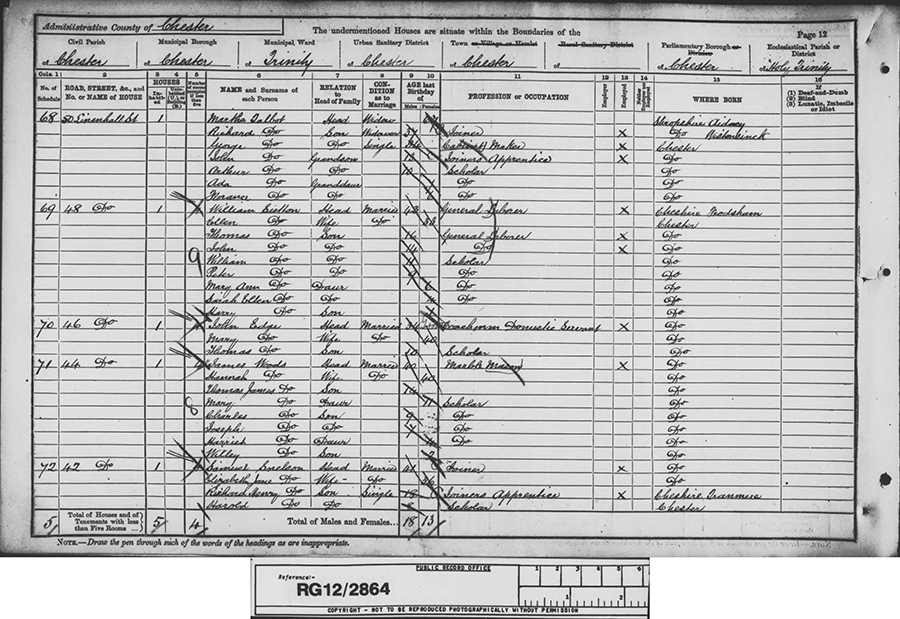 Administrative County of Chester
The undermentioned Houses are situate within the Boundaries of the
Page 12
Civil Parish
Municipal Borough
Municipal Ward
Urban Sanitary District
Town or Village or Hamlet
Rural Sanitary District
Parliamentary Borough or Division
Ecclesiastical Parish or District
of Chester
of Chester
of Trinity
of Chester
of Chester
of
of Chester
of Holy Trinity
Cols. 1 2 3 4 5 6 7 8 9 10 11 12 13 14 15 16
No. of Schedule
ROAD, STREET, &c., and No. or NAME of HOUSE
HOUSES
NAME and Surname of each Person
RELATION to Head of Family
CONDITION as to Marriage
AGE last Birthday of
Males Females
PROFESSION or OCCUPATION
Employer
Employed
WHERE BORN
If
(1) Deaf-and-Dumb
(2) Blind
(3) Lunatic, Imbecile or Idiot
68 50 Linenhall St 1 Martha Talbot Head Widow Shropshire
Richard Do Son Widower 37 Joiner X Do
George Do Do Single Cabinet Maker X Chester
John Do Grandson 13 Joiners Apprentice X Do
Arthur Do Do 10 Scholar Do
Ada Do Granddaur Do Do
Do Do Do Do
69 48 Do 1 William Head Married 43 General Laborer X Cheshire Frodsham
Ellen Do Wife Do 38 Chester
Thomas Do Son 16 General Laborer X Do
John Do Do 14 Do X Do
William Do Do 11 Scholar Do
Peter Do Do 9 Do
Mary Ann Do Daur 6 Do
Sarah Ellen Do Do 4 Do
Harry Do Son Do
70 46 Do 1 John Edge Head Married Coachman Domestic Servant X Do
Mary Do Wife Do 40 Do
Thomas Do Son 10 Scholar Do
71 44 Do 1 James Woods Head Married 40 Marble Mason X Do
Hannah Do Wife Do 40 Do
Thomas James Do Son 14 Do
Mary Do Daur 11 Scholar Do
Charles Do Son 9 Do Do
Joseph Do Do 7 Do Do
Harriet Do Daur Do Do
Do Son Do
72 42 Do 1 Samuel Snelson Head Married 41 Joiner X Do
Elizabeth Jane Do Wife Do 36 Do
Richard Henry Do Son Single 18 Joiners Apprentice X Cheshire Tranmere
Harold Do Do Scholar Chester
5 Total of Houses and of Tenements with less than Five Rooms 5 4 Total of Males and Females... 18 13
NOTE.—Draw the pen through such of the words of the headings as are inappropriate.
PUBLIC RECORD OFFICE
Reference:-
RG12/2864
1 2 3 4 5 6
1 2
COPYRIGHT - NOT TO BE REPRODUCED PHOTOGRAPHICALLY WITHOUT PERMISSION